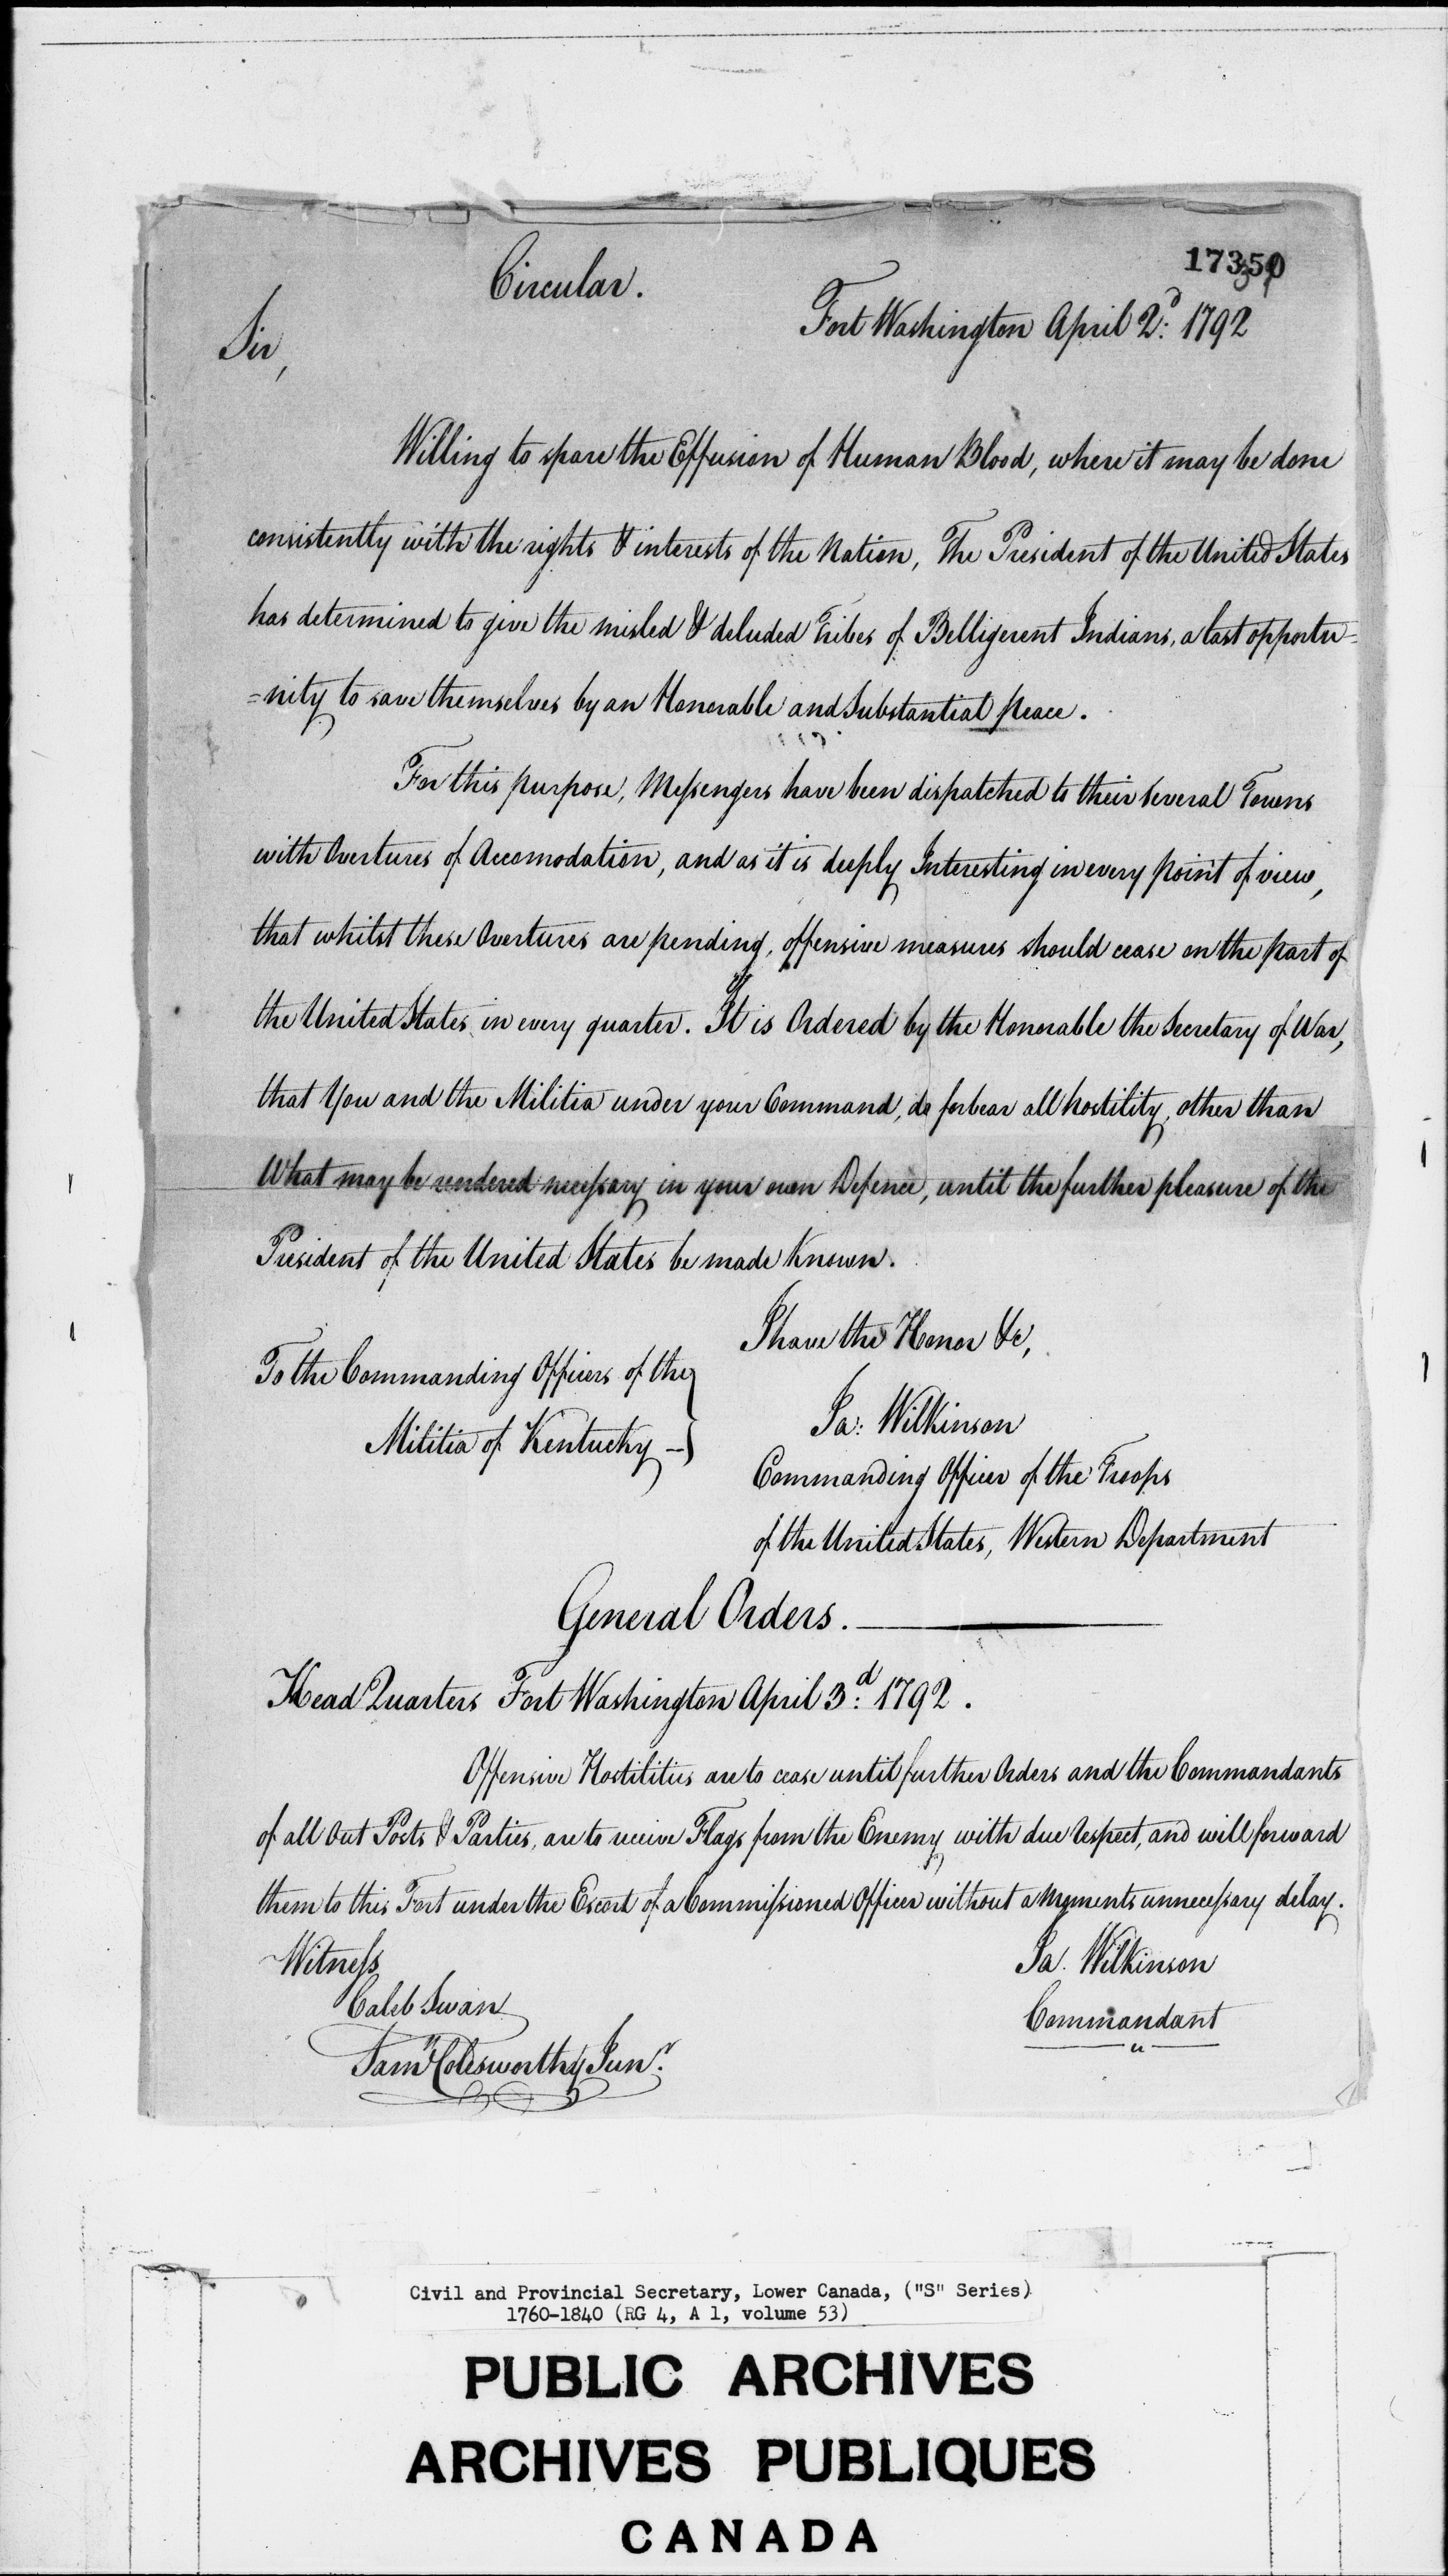 17350
Circular.
Fort Washington April 2d: 1792
Sir,
Willing to spare the Effusion of Human Blood, where it may be done
consistently with the rights & interests of the Nation, The President of the United States
has determined to give the misled & deluded Tribes of Belligerent Indians, a last opportu=
=nity to save themselves by an Honorable and Substantial peace.
For this purpose, Messengers have been dispatched to their several Towns
with Overtures of Accomodation, and as it is deeply Interesting in every point of view,
that whilst these Overtures are pending, offensive measures should cease on the part of
the United States, in every quarter. It is Ordered by the Honorable the Secretary of War,
that You and the Militia under your Command, do forbear all hostility, other than
What may be rendered necessary in your own Defence, until the further pleasure of the
President of the United States be made Known.
I have the Honor &c,
To the Commanding Officers of the
Militia of Kentucky -
Ja: Wilkinson
Commanding Officer of the Troops
of the United States, Western Department
General Orders.
Head Quarters Fort Washington April 3d: 1792.
Offensive Hostilities are to cease until further Orders and the Commandants
of all Out Posts & Parties, are to receive Flags from the Enemy with due respect, and will forward
them to this Fort under the Escort of a Commissioned Officer without a moments unnecessary delay.
Witness
Ja. Wilkinson
Caleb Swan
Commandant
Saml Colesworthy Junr.
Civil and Provincial Secretary, Lower Canada, ("S" Series)
1760-1840 (RG 4, A 1, volume 53)
PUBLIC ARCHIVES
ARCHIVES PUBLIQUES
CANADA